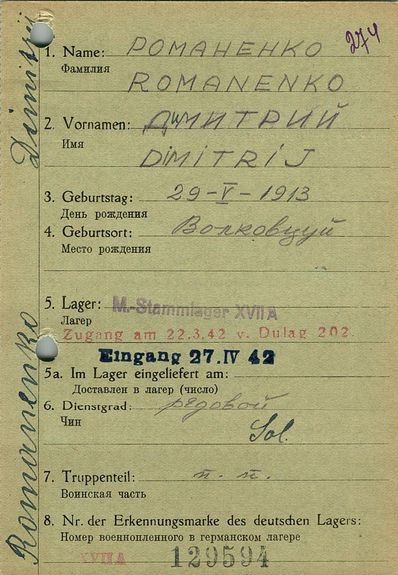 Romanenko Dimitrij
274
1. Name: РОМАНЕНКО
Фамилия
ROMANENKO
2. Vornamen: ДИМИТРИЙ
Имя
DIMITRIJ
3. Geburtstag: 29-V-1913
День рождения
4. Geburtsort: Волковцуй
Место рождения
5. Lager: M.-Stammlager XVII A
Лагер
Zugang am 22.3.42 v. Dulag 202.
Eingang 27. IV 42
5a. Im Lager eingeliefert am:
Доставлен в лагер (число)
6. Dienstgrad: рядовой
Чин
Sol.
7. Truppenteil: п. п.
Воинская часть
8. Nr. der Erkennungsmarke des deutschen Lagers:
Номер военнопленного в германском лагере
XVII A 129594